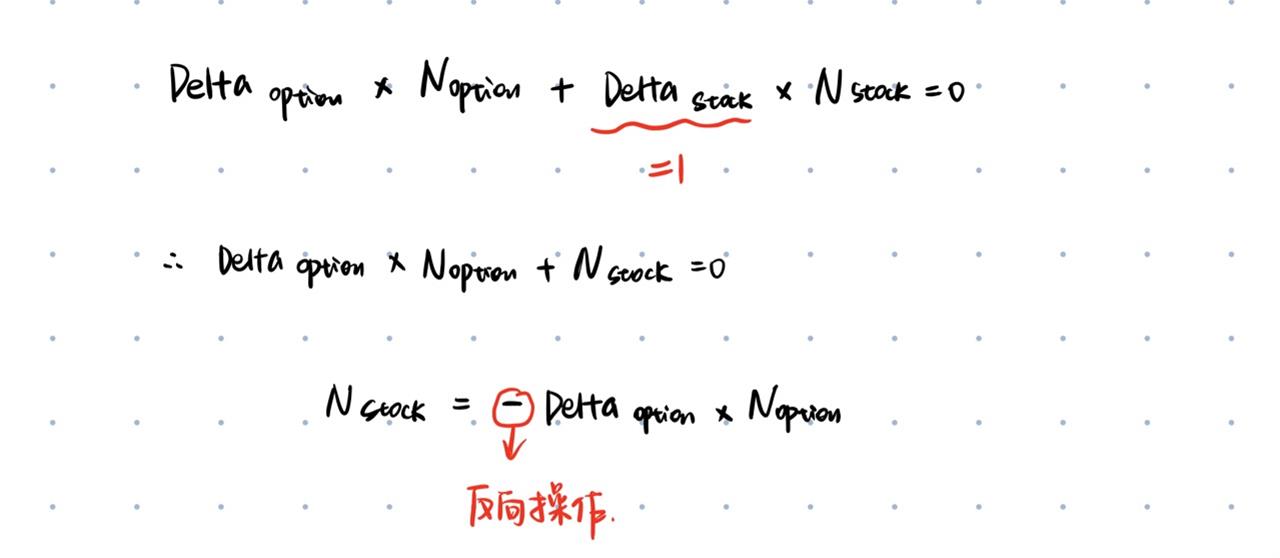 Delta option × N option + Delta stock × N stock = 0
= 1
∴ Delta option × N option + N stock = 0
N stock = - Delta option × N option
反向操作.